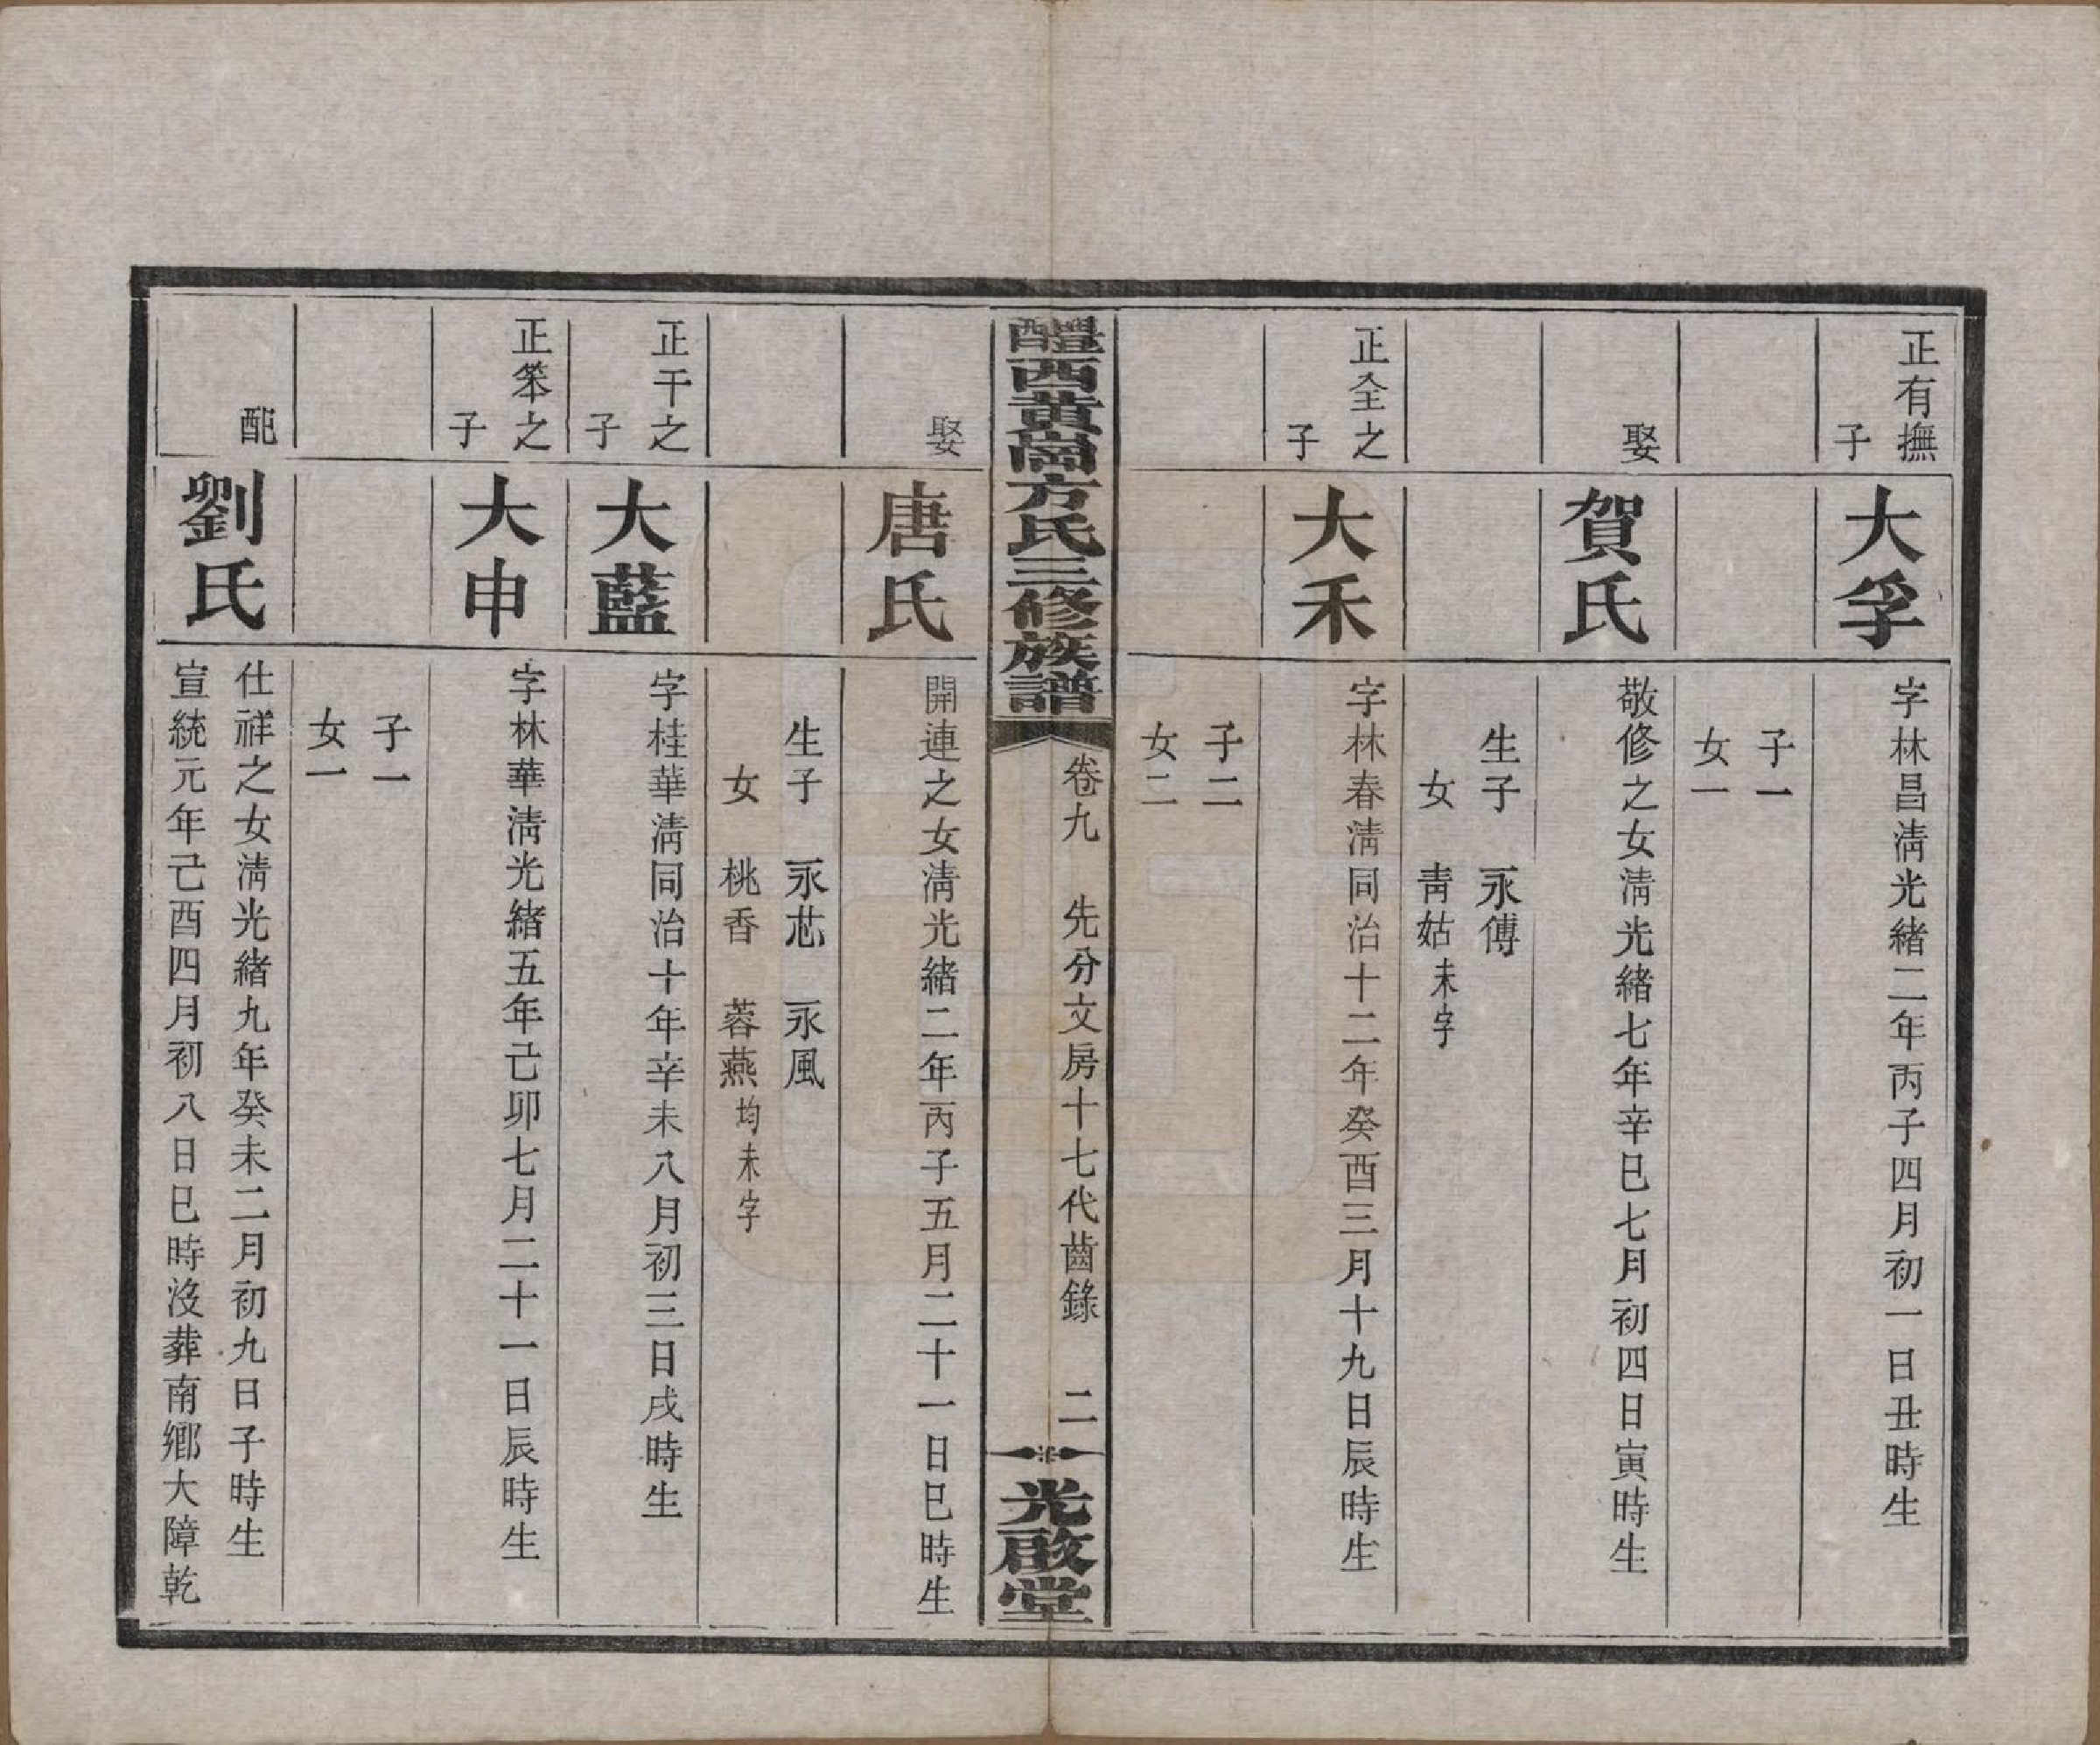 正有撫
子
大孚
字林昌淸光緒二年丙子四月初一日丑時生
子一
女一
娶
賀氏
敬修之女淸光緒七年辛巳七月初四日寅時生
生子　永傅
女　靑姑未字
正全之
子
大禾
字林春淸同治十二年癸酉三月十九日辰時生
子二
女二
醴西黄崗方氏三修族譜
卷九　先分文房十七代齒錄　二
光啟堂
娶
唐氏
開連之女淸光緒二年丙子五月二十一日巳時生
生子　永芯　永風
女　桃香　蓉燕均未字
正干之
子
大藍
字桂華淸同治十年辛未八月初三日戌時生
正笨之
子
大申
字林華淸光緒五年己卯七月二十一日辰時生
子一
女一
配
劉氏
仕祥之女淸光緒九年癸未二月初九日子時生
宣統元年己酉四月初八日巳時沒葬南鄉大障乾